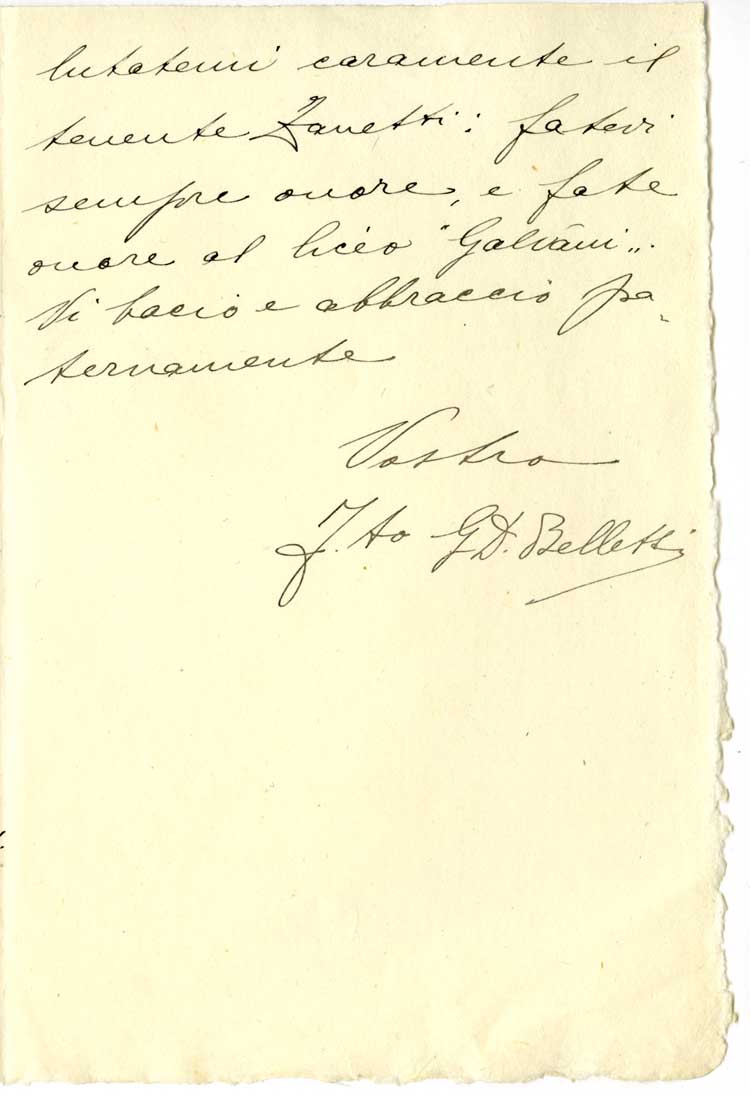 lutatemi caramente il
tenente Zanetti: fatevi
sempre onore, e fate
onore al liceo "Galvani„.
Vi bacio e abbraccio pa-
ternamente
Vostro
F.to G.D. Belletti